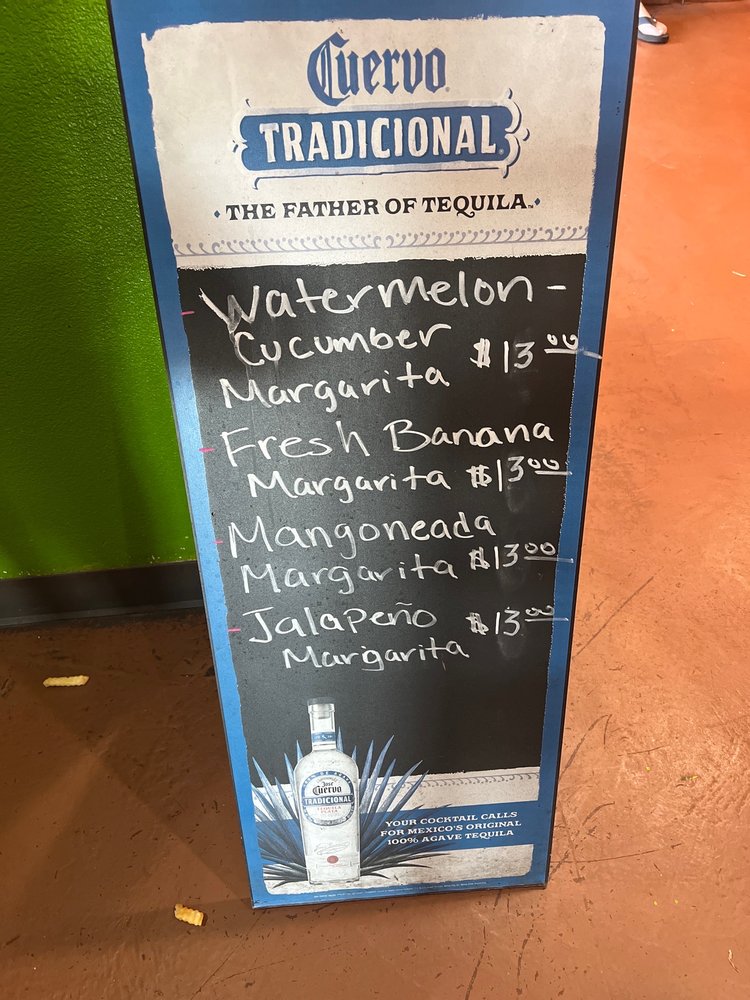 Cuervo
TRADICIONAL
THE FATHER OF TEQUILA
- Watermelon -
Cucumber
Margarita $13.00
- Fresh Banana
Margarita $13.00
- Mangoneada
Margarita $13.00
- Jalapeño $13.00
Margarita
José
Cuervo
TRADICIONAL
YOUR COCKTAIL CALLS
FOR MEXICO'S ORIGINAL
100% AGAVE TEQUILA